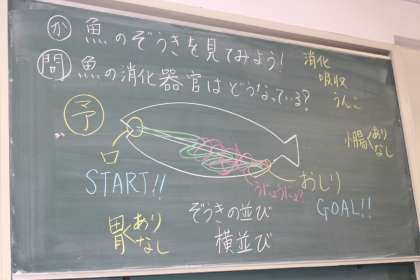 か 魚のぞうきを見てみよう！
消化
吸収
うんこ
問 魚の消化器官はどうなっている？
予
口
START!!
小腸 あり
なし
おしり
GOAL!!
胃 あり
なし
ぞうきの並び
横並び